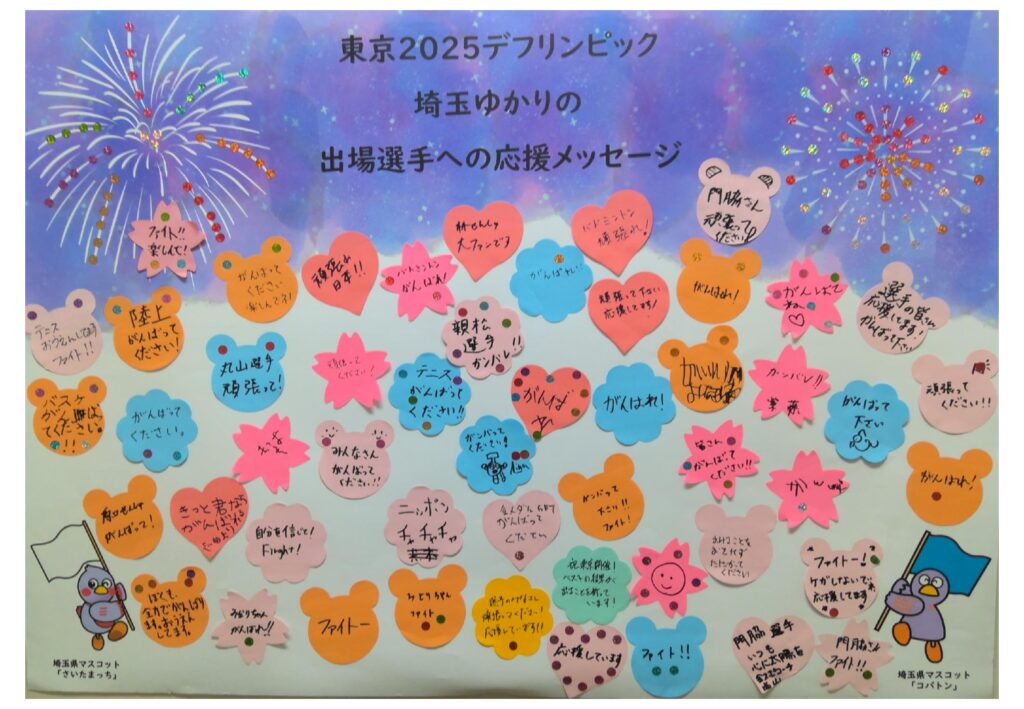 東京2025デフリンピック
埼玉ゆかりの
出場選手への応援メッセージ
門脇さん
頑張って
ください
ファイト!!
楽しんで!
がんばって
ください
頑張れ
日本!!
バドミントン
がんばれ!
林せんしゅ
大ファンです
がんばれ!!
バドミントン
頑張れ!
頑張って下さい
応援してます!
がんばれ!
がんばって
ね〜♡
選手の皆さん
応援してます!
がんばって下さい
テニス
おうえんしてます
ファイト!!
陸上
がんばって
ください!
丸山選手
頑張って!
頑張って
ください!
親松
選手
ガンバレ!!
テニス
がんばって
ください!!
がんば
がんばれ!
ガンバレ!!
頑張って
ください!!
バスケ
がんばって
ください
!!
がんばって
ください。
みんなさん
がんばって
ください!!
ガンバって
ください!
皆さん
がんばって
ください!!
がんばって
下さい
がんばれ!
せんしゅ
がんばって!
きっと君なら
がんばれる
自分を信じて!
Flight!
ニッポン
チャチャチャ
金メダル
がんばって
ください
ガンバって
下さい!!
ファイト!
ファイトー!
ケガしないで
応援してます
ぼくも
全力でがんばり
ます。おうえん
してます。
みどりちゃん
がんばれ!!
ファイトー
みどりちゃん
ファイト
応援しています!!
祝東京開催!
ベストの結果が
出ることを祈って
います!
応援しています
ファイト!!
門脇選手
いつも
心に太陽を
門脇さん
ファイト!!
埼玉県マスコット
「さいたまっち」
埼玉県マスコット
「コバトン」